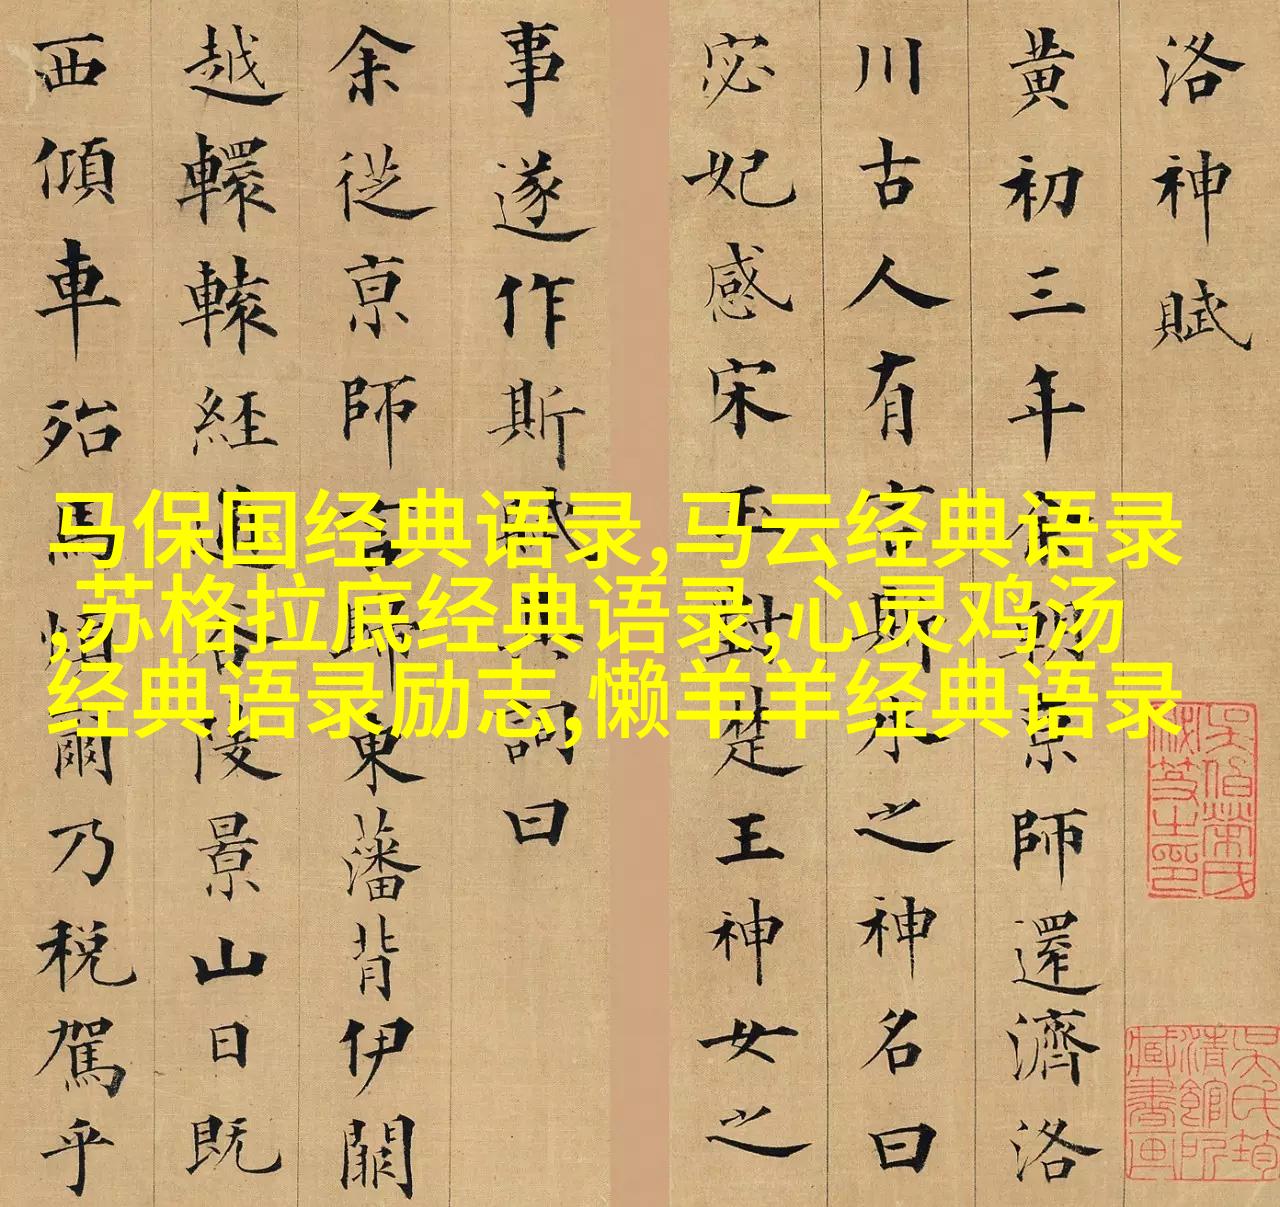 洛神賦
黄初三年余朝京師還濟洛
川古人有言斯水之神名曰
宓妃感宋玉對楚王神女之
事遂作斯賦其詞曰
余從京師言歸東藩背伊闕
越轘轅經通谷陵景山日既
西傾車殆馬煩爾乃稅駕乎
马保国经典语录,马云经典语录
,苏格拉底经典语录,心灵鸡汤
经典语录励志,懒羊羊经典语录